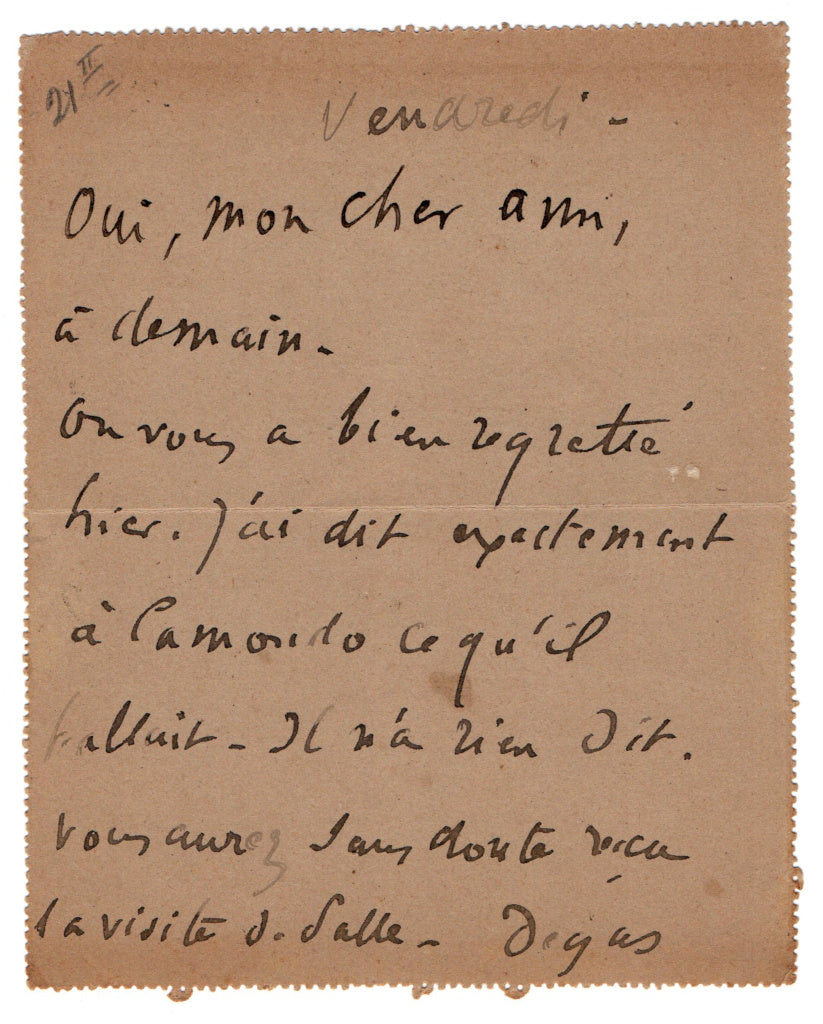 21 II
Vendredi -
Oui, mon cher ami,
à demain -
On vous a bien regretté
hier. J'ai dit exactement
à Camondo ce qu'il
fallait - Il n'a rien dit.
Vous aurez sans doute reçu
la visite de Salle - Degas